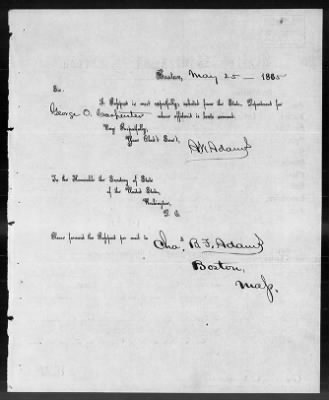 Boston, May 25 — 1865
Sir.
A Passport is most respectfully solicited from the State Department for
George O. Carpenter whose affidavit is hereto annexed.
Very Respectfully,
Your Obed't Serv't,
A.W. Adams
To the Honorable the Secretary of State
of the United States,
Washington,
D. C.
Please forward the Passport for me to Chas. B. F. Adams
Boston,
Mass.